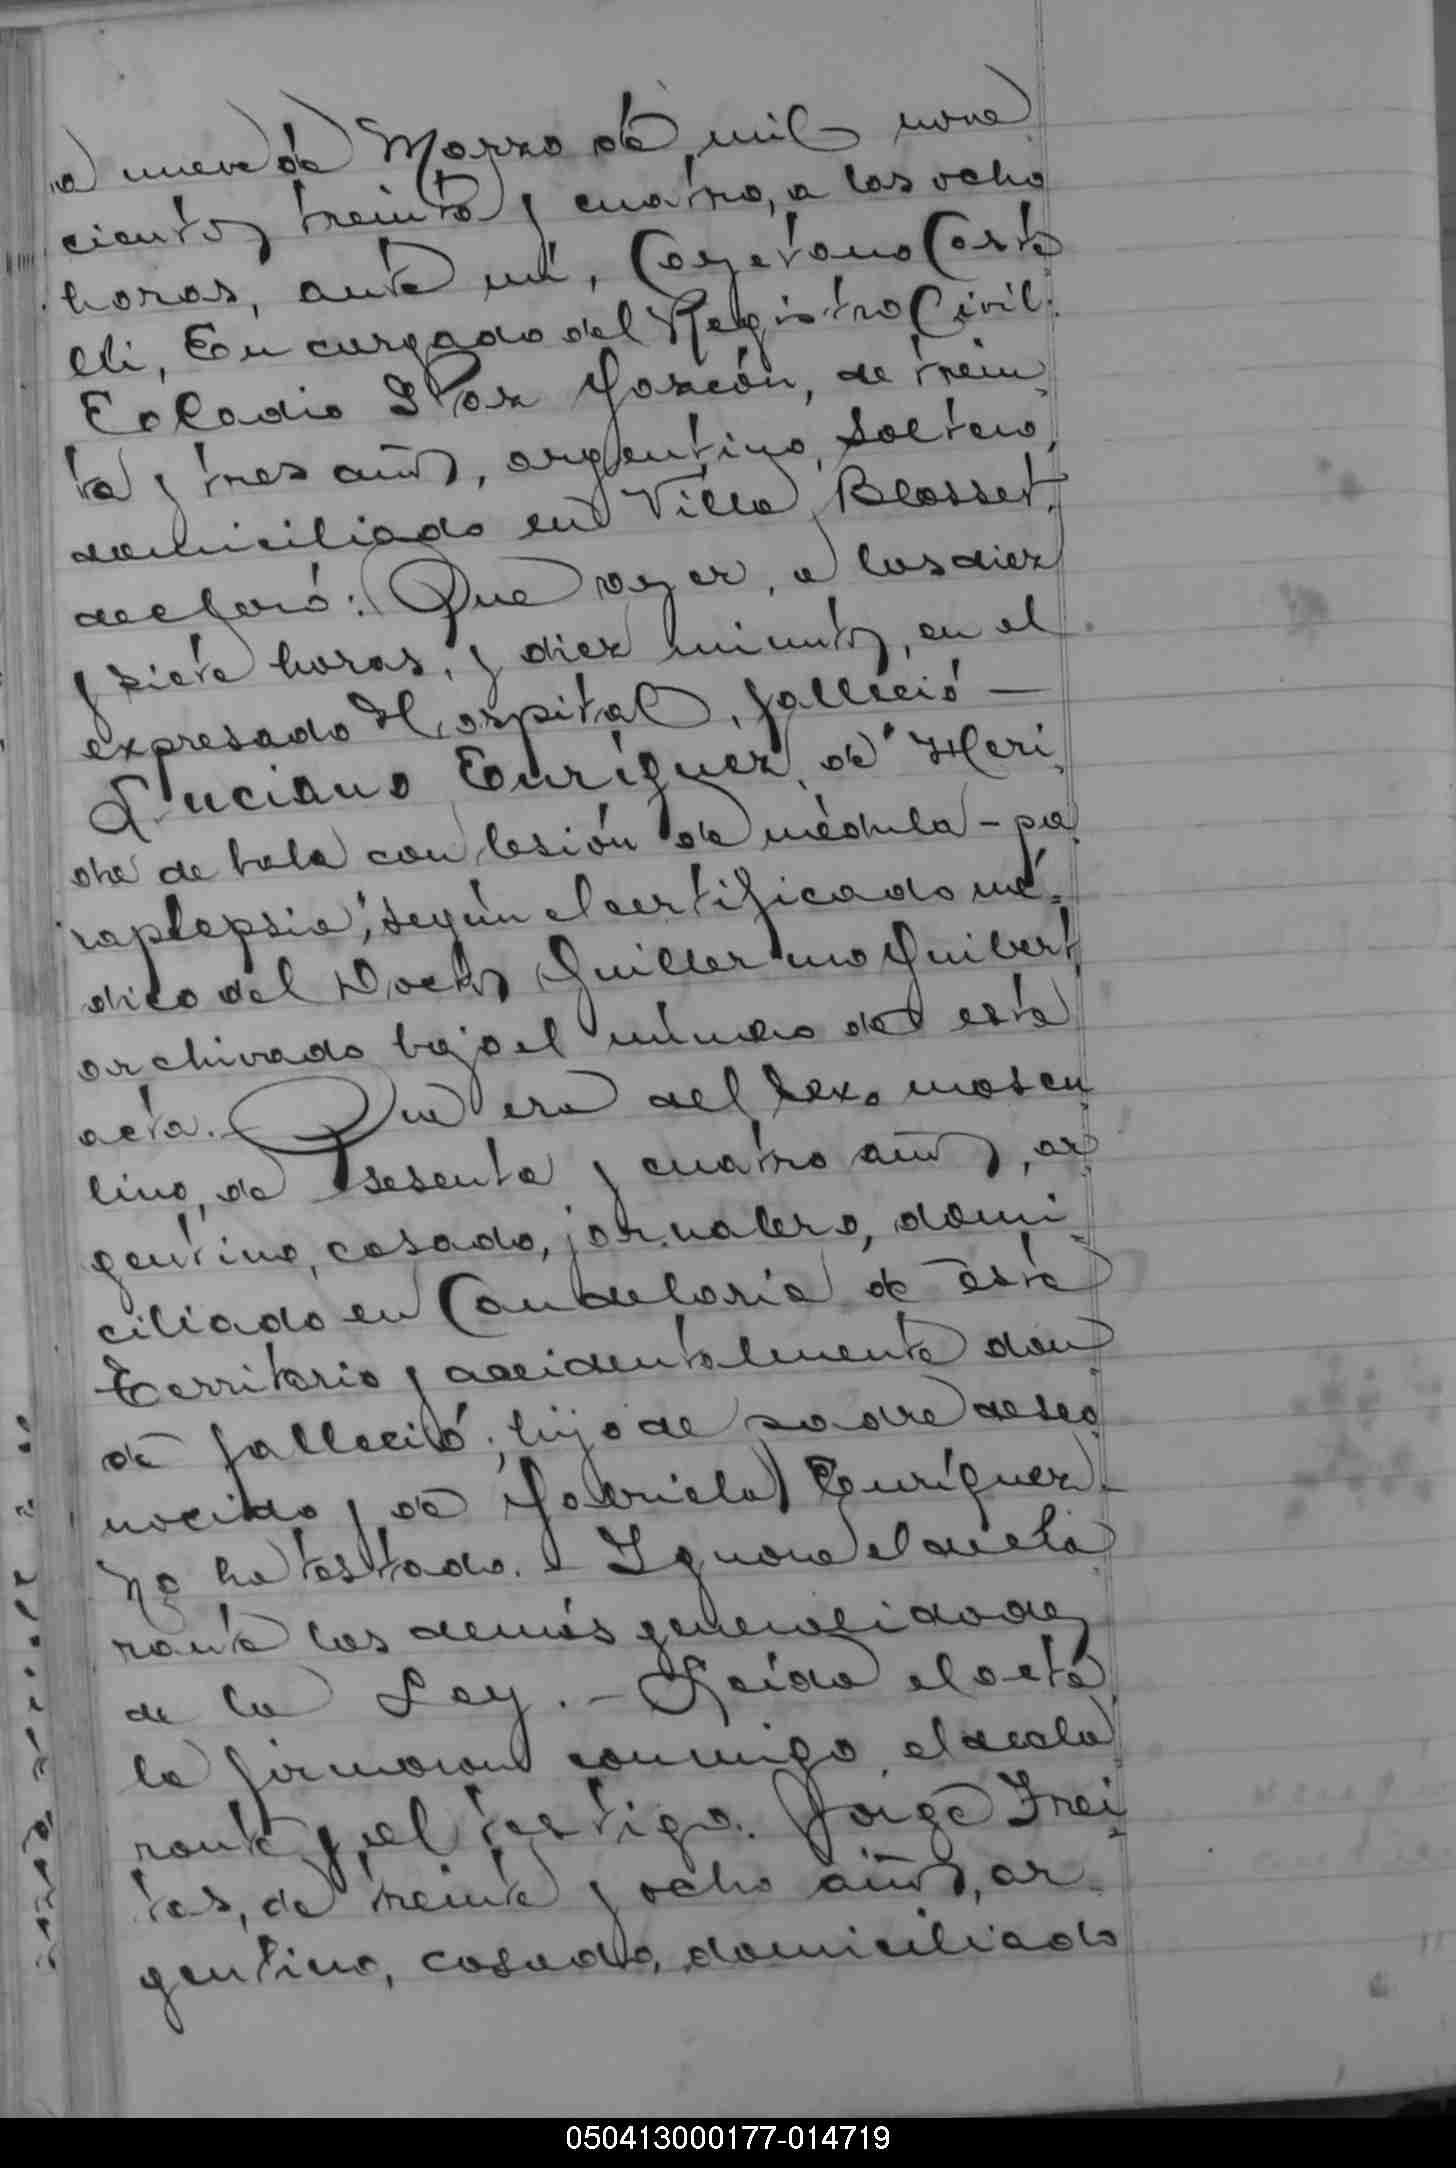 a nueve de Marzo de mil nove
cientos treinta y cuatro, a las ocho
horas, ante mí, Cayetano Caste
lli, Encargado del Registro Civil:
Eoladio Paz Garzón, de trein
ta y tres años, argentino, soltero,
domiciliado en Villa Blosset,
declaró: Que ayer, a las diez
y siete horas, y diez minutos, en el
expresado Hospital, falleció —
Luciano Enríquez, de "Heri
da de bala con lesión de médula - pa
raplepsia", según el certificado mé-
dico del Doctor Guillermo Guibert
archivado bajo el número de esta
acta. - Que era del sexo mascu
lino, de sesenta y cuatro años, ar
gentino, casado, jornalero, domi
ciliado en Candelaria de este
Territorio y accidentalmente don
de falleció; hijo de padre desco
nocido y de Gabriela Enríquez.
No ha testado. - Ignora el decla
rante las demás generalidades
de la Ley. - Leída el acta
la firmaron conmigo el decla
rante y el testigo. Jorge Frei
tas, de treinta y ocho años, ar-
gentino, casado, domiciliado
050413000177-014719